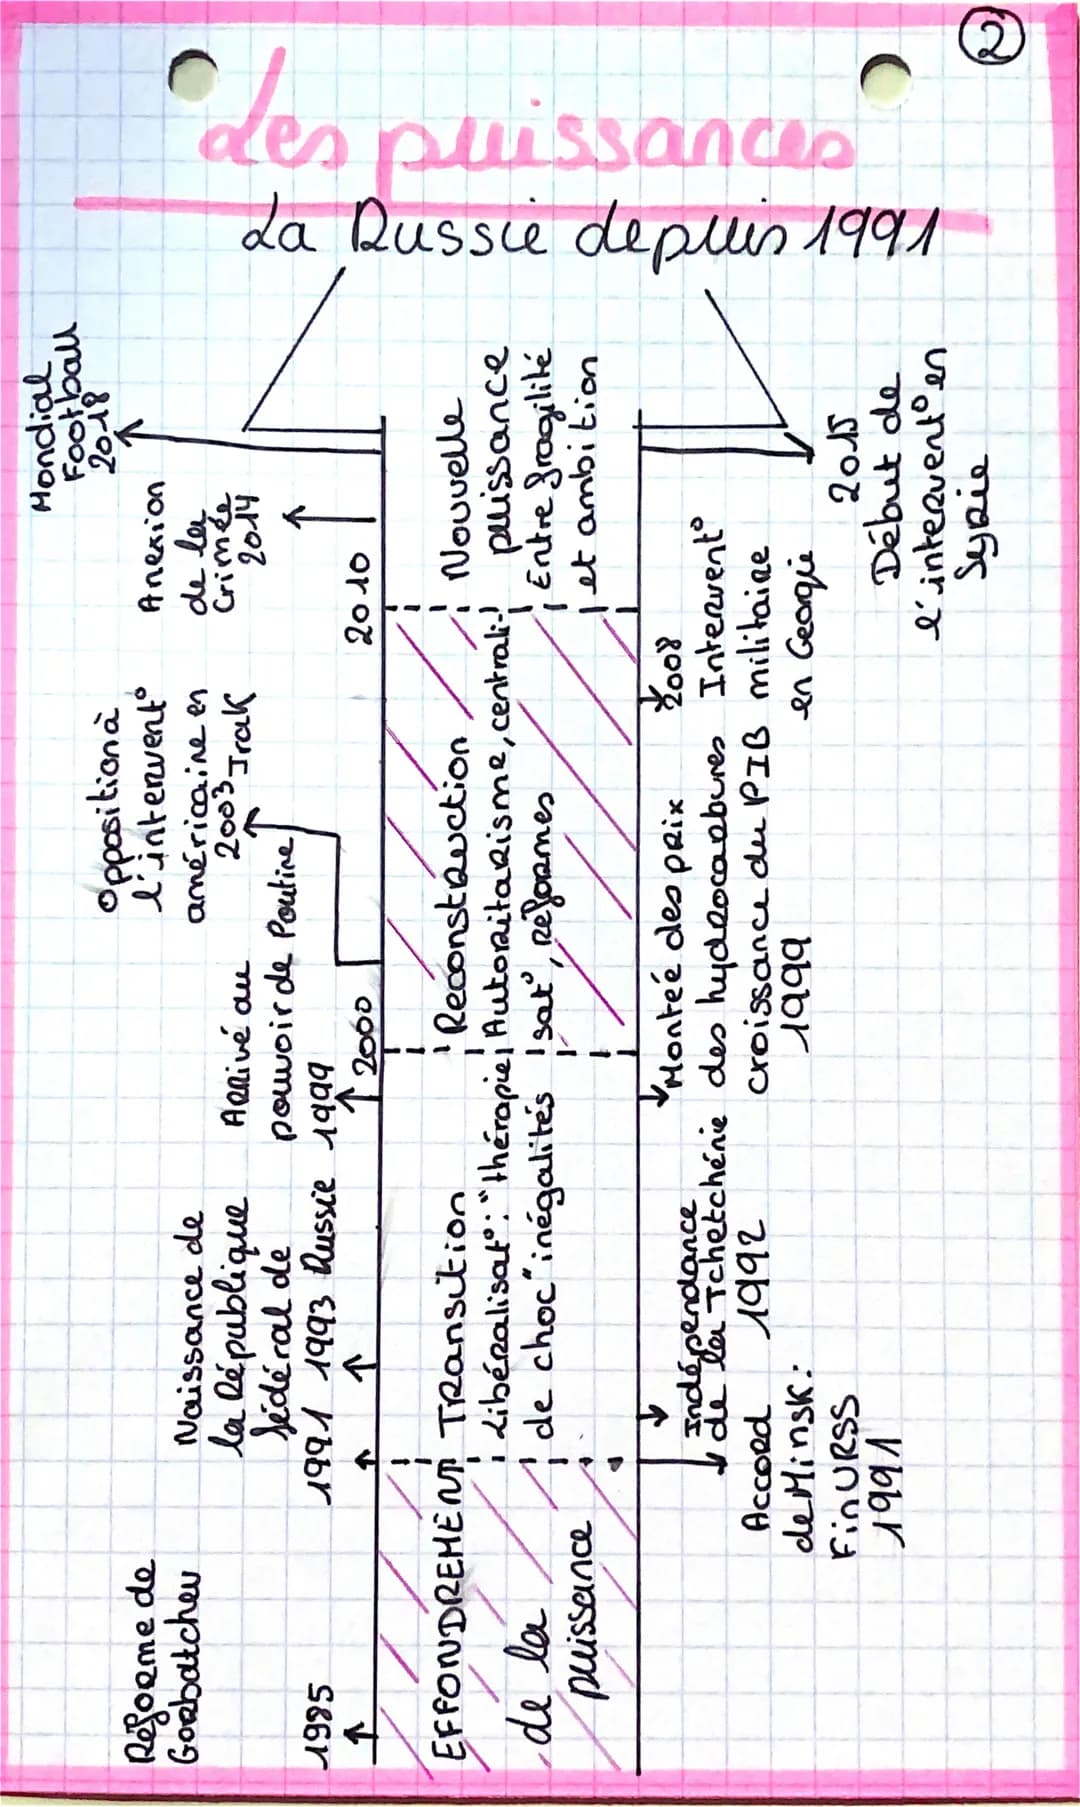 2
Les puissances
La Russie depuis 1991
Réforme de
Gorbatchev
1985
Naissance de
la République
fédéral de
1991 1993 Russie
Arrivé au
pouvoir de Poutine
1999
Opposition à
l'intervent°
américaine en
2003 Irak
Anexion
de la
Crimée
2014
Mondial
Football
2018
2000
2010
EFFONDREMENT
de la
puissance
Transition
Libéralisat°: "thérapie
de choc" inégalités
Reconstruction
Autoritarisme, centrali-
sat°, réformes
Nouvelle
puissance
Entre fragilité
et ambition
Accord
de Minsk:
Fin URSS
1991
Indépendance
de la Tchetchénie
1992
Montée des prix
des hydrocarbures
croissance du PIB
1999
2008
Intervent°
militaire
en Georgie
2015
Début de
l'intervent° en
Syrie